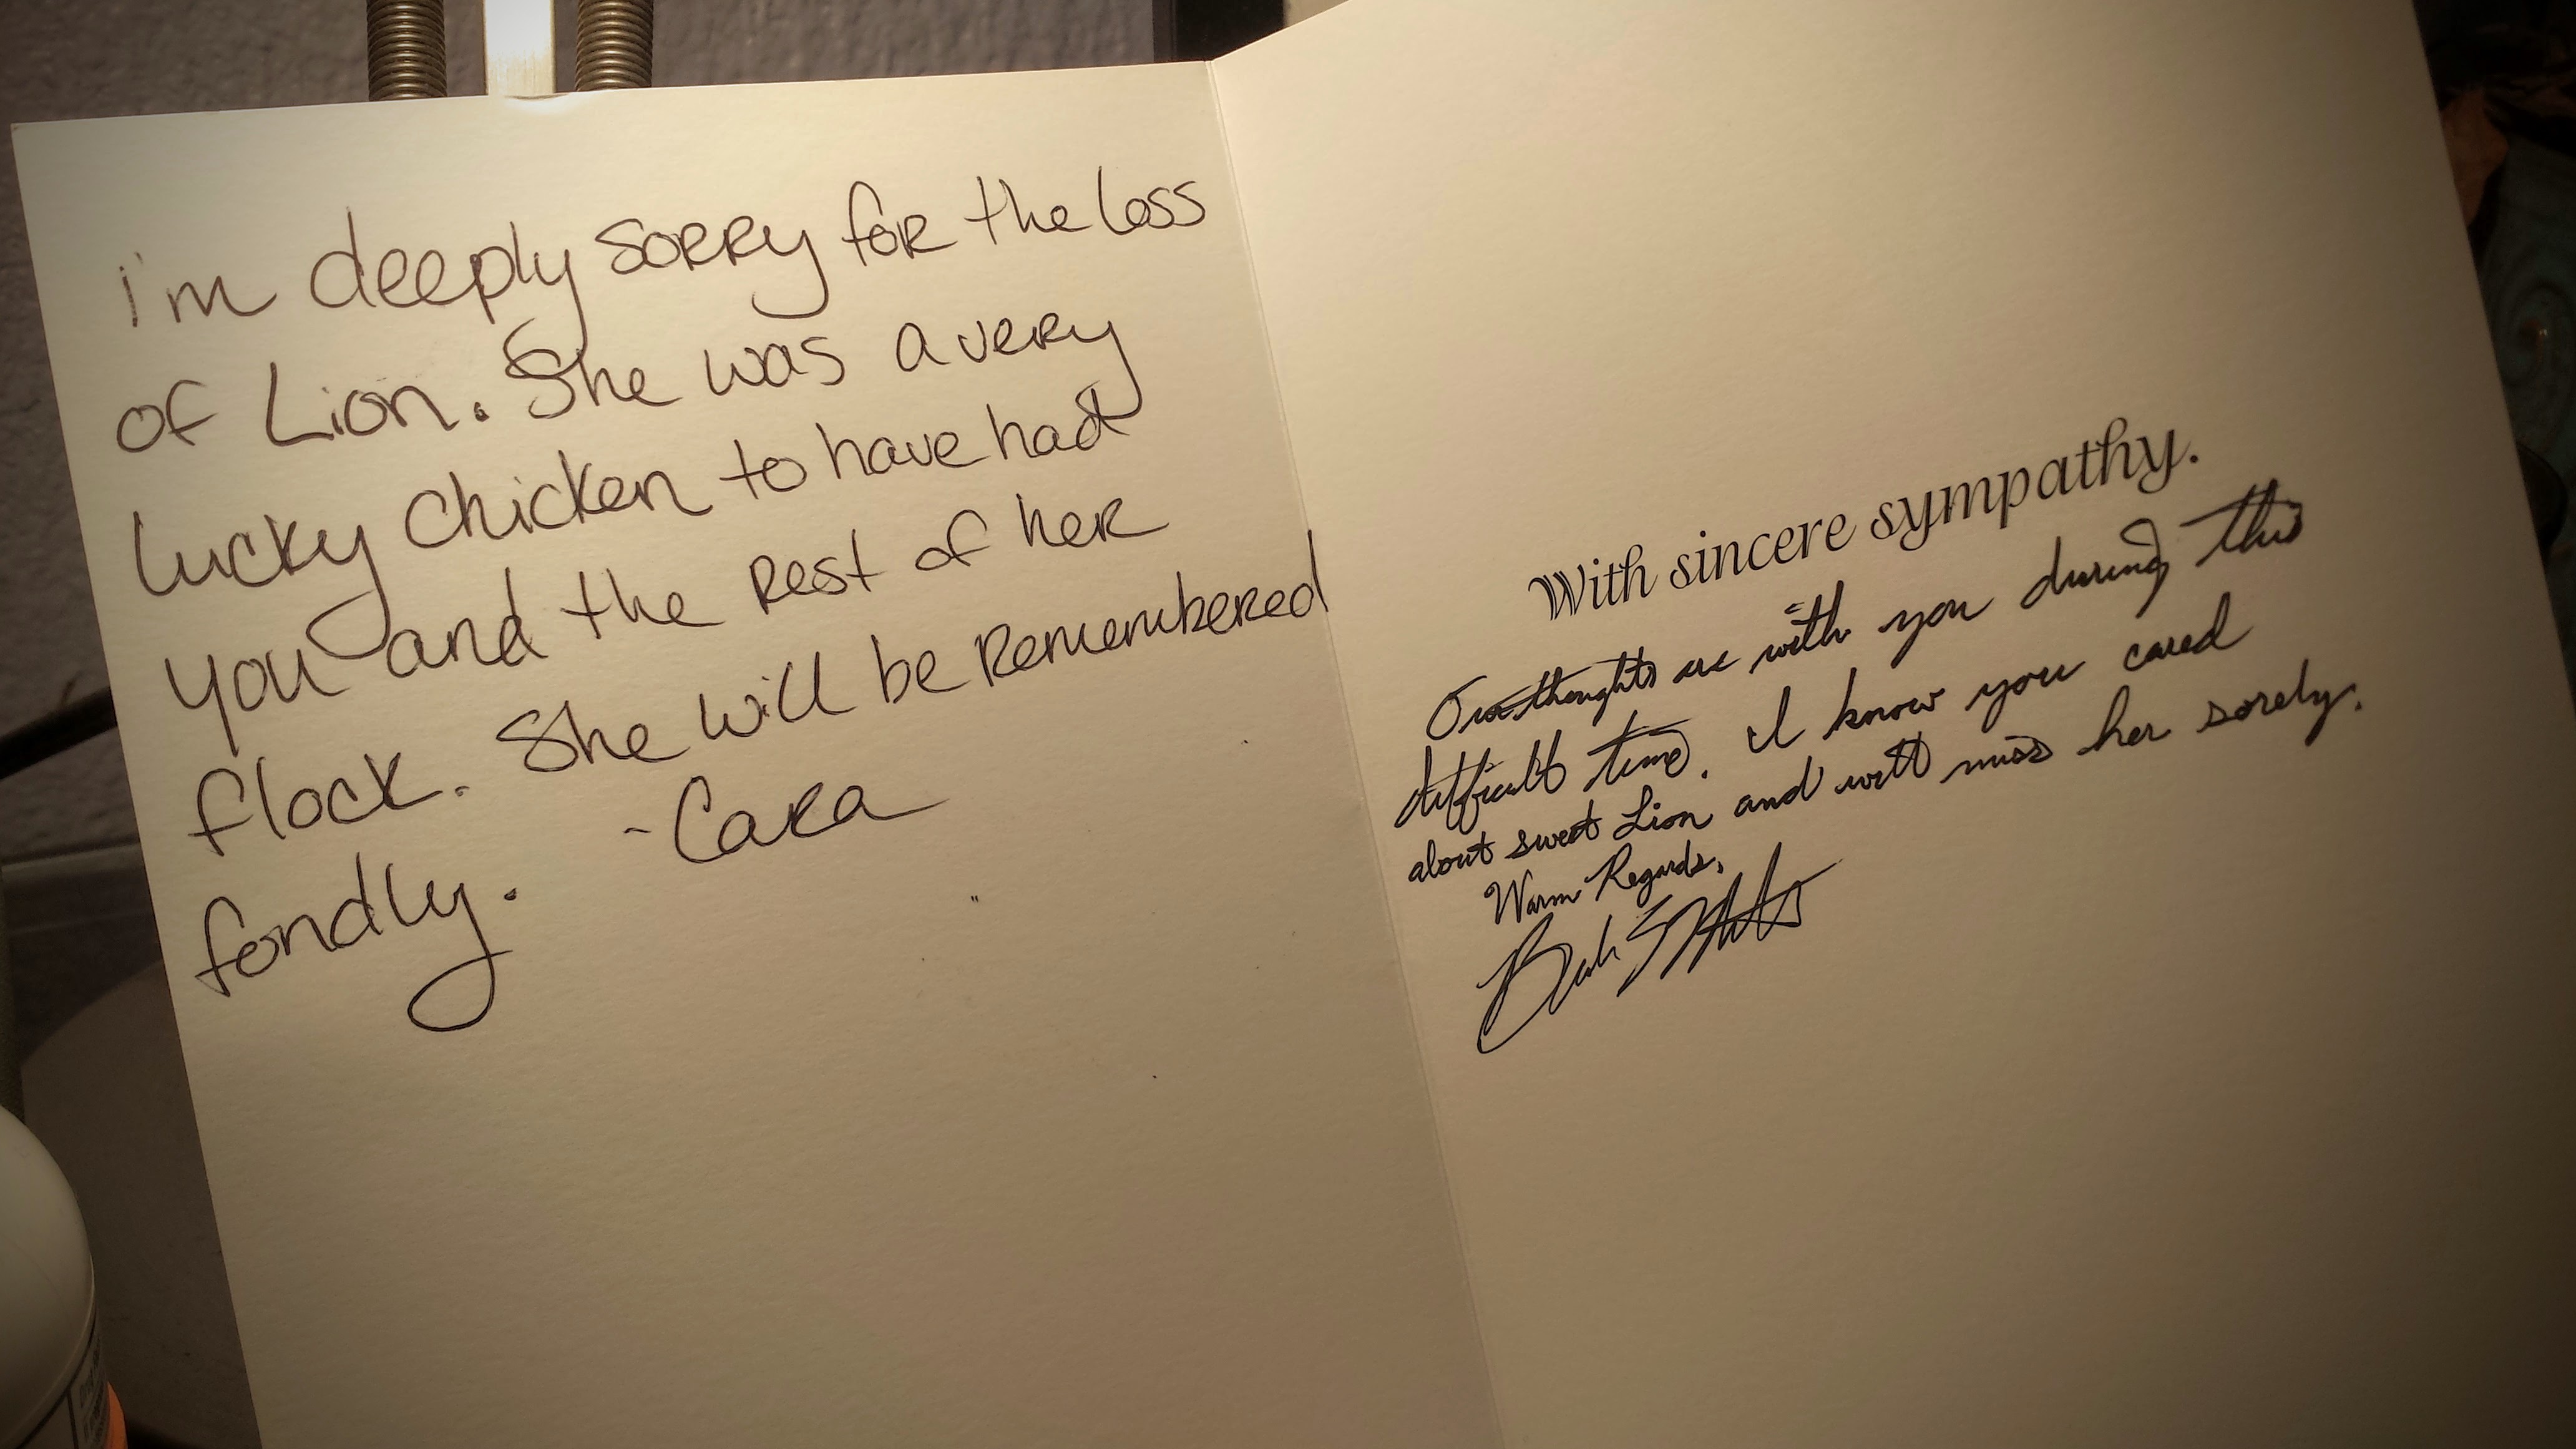 i'm deeply sorry for the loss
of Lion. She was a very
lucky chicken to have had
you and the rest of her
flock. She will be remembered
fondly.
-Cara
With sincere sympathy.
Our thoughts are with you during this
difficult time. I know you cared
about sweet Lion and will miss her sorely.
Warm Regards,